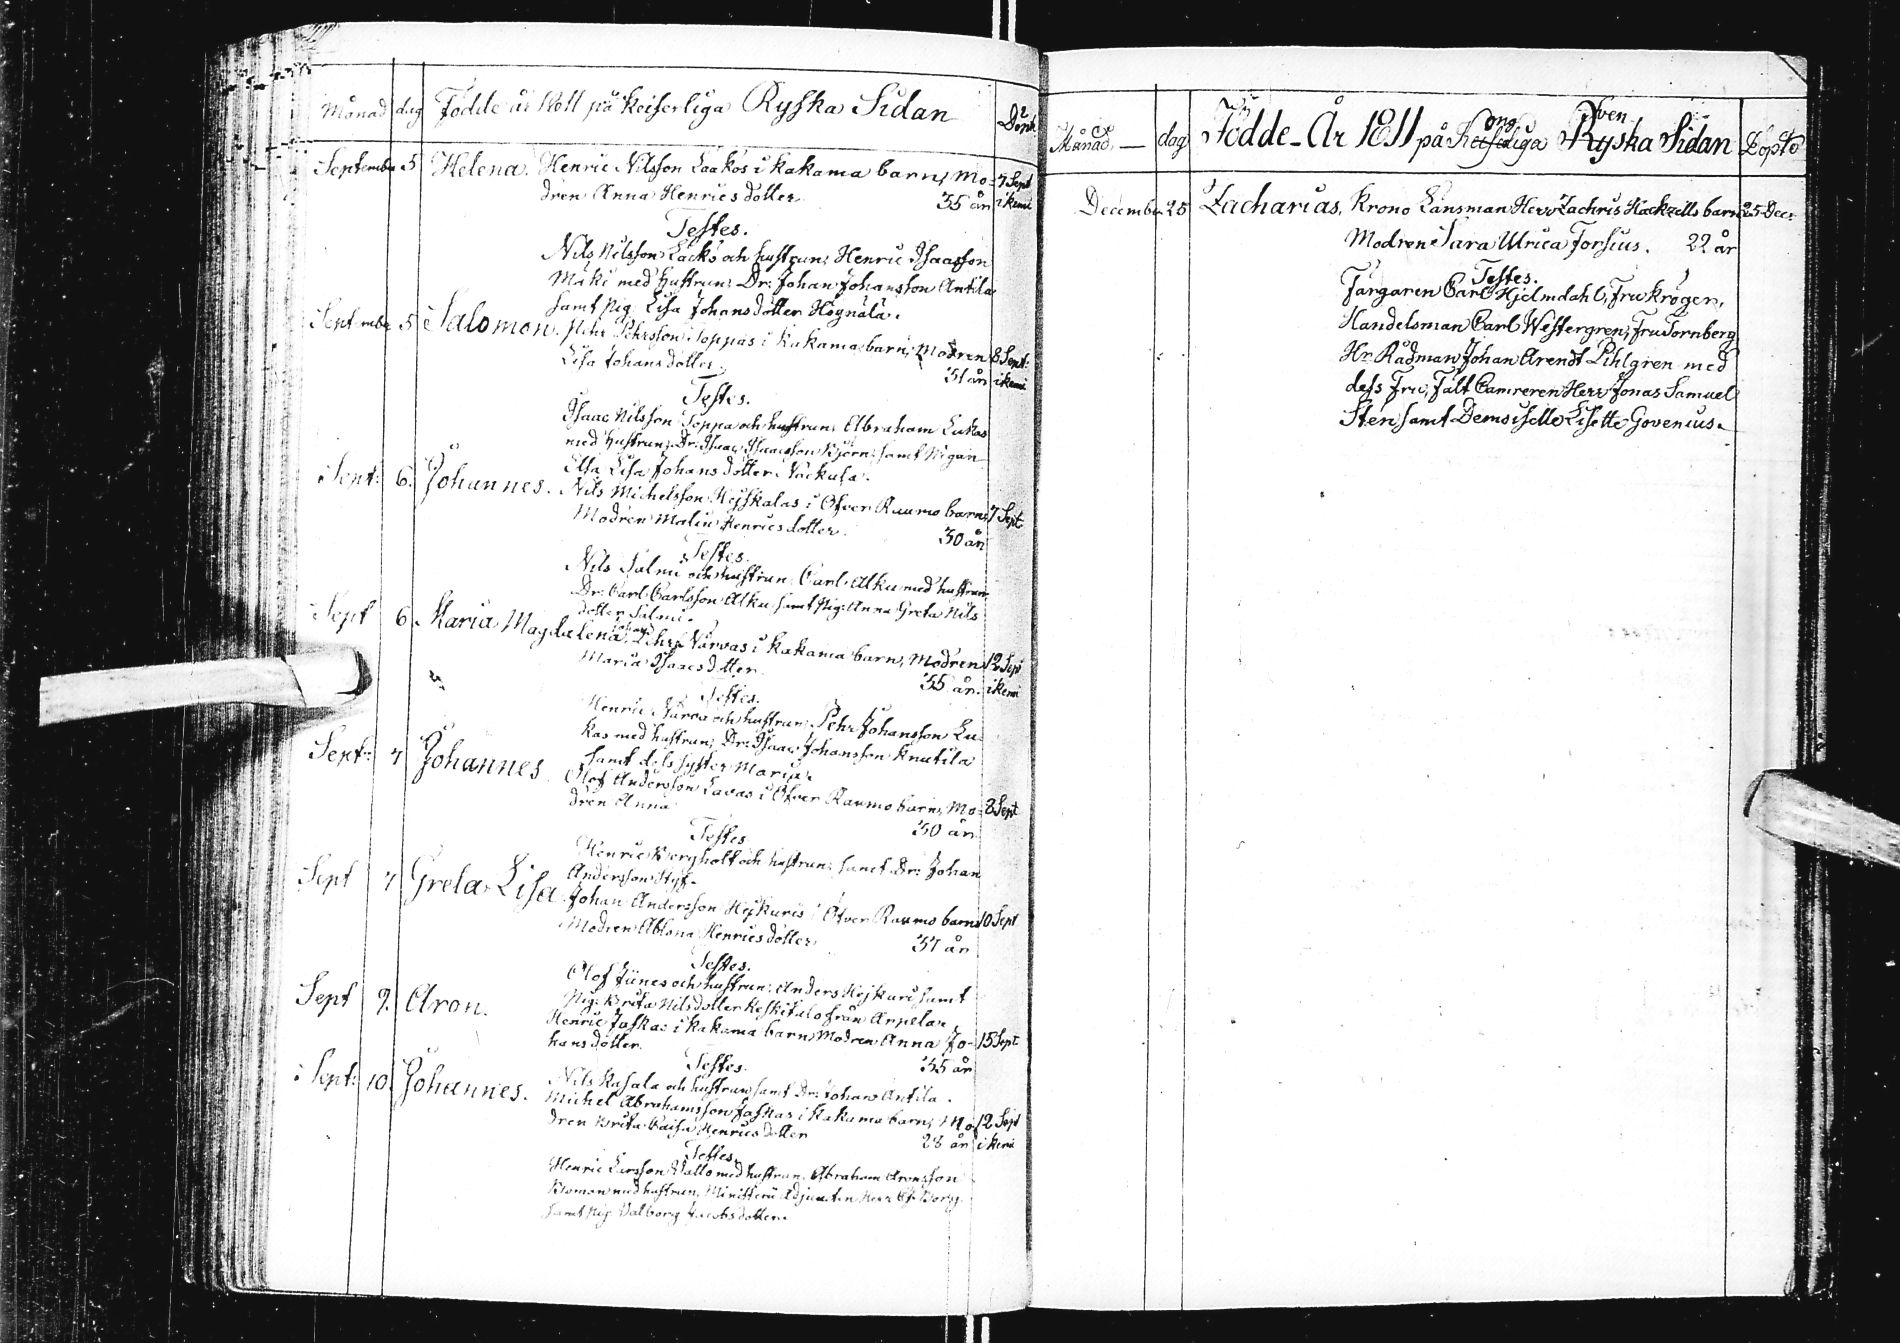 Månad dag Födde år 1811 på Keiserliga Ryska Sidan Döpte
September 5 Helena. Henric Nilsson Laakos i Kakama barn, Mo= 7 Sept
dren Anna Henricsdotter 35 år i Kemi
Testes.
Nils Nilsson Laako och hustrun; Henric Isaacsson
Mäki med hustrun; Dr: Johan Johansson Antila
samt Pig. Lisa Johansdotter Högnälä.
September 5 Salomon. Pehr Pehrsson Toppas i Kakama barn, Modren 8 Sept:
Lisa Johansdotter 31 år i Kemi
Testes.
Isaac Nilsson Toppa och hustrun; Abraham Lukas
med hustrun; Dr. Isaac Isaacsson Björn; samt Pigan
Elsa Lisa Johansdotter
Sept: 6. Johannes. Nils Michelsson Hejskalas i Ofver Raumo barn; 7 Sept
Modren Malin Henricsdotter 30 år
Testes.
Nils Salmi och hustrun; Carl Alku med hustrun
Dr: Carl Carlsson Alku samt Pig: Anna Greta Nils
dotter Salmi.
Sept 6 Maria Magdalena. Johan Pehrs Narvas i Kakama barn, Modren 12 Sept
Maria Isaacsdotter 35 år. i Kemi
Testes.
Henric Narva och hustrun; Pehr Johansson Lu=
kas med hustrun; Dr: Isaac Johansson Knutila
samt dess syster Maria.
Sept: 7 Johannes Olof Andersson Lavas i Ofver Raumo barn, Mo= 8 Sept
dren Anna 30 år
Testes
Henric Bergholt och hustrun; samt Dr: Johan
Andersson
Sept 7 Greta Lisa. Johan Andersson Hejkuris i Ofver Raumo barn 10 Sept
Modren Abluna Henricsdotter 37 år
Testes.
Olof Jünes och hustrun; Anders Hejkuri samt
Pig: Brita Nilsdotter Keskitalo från Arpela.
Sept 9. Aron. Henric Jaskas i Kakama barn, Modren Anna Jo- 15 Sept
hansdotter. 35 år
Testes.
Nils Kasala och hustrun, samt Dr: Johan Antila.
Sept: 10. Johannes. Michel Abrahamsson Jaskas i Kakama barn; Mo= 12 Sept
dren Brita Caisa Henricsdotter 28 år i Kemi
Testes.
Henric Larsson Vallo med hustrun. Abraham Aronsson
med hustrun, Ministerii Adjuncten Herr
samt Pig Valborg Jacobsdotter.
Månad dag Födde År 1811 på Keiserliga Cong Sven Ryska Sidan Döpte
December 25 Zacharias. Krono Länsman Herr Zachris Hackzells barn 25 Dec:
Modren Sara Ulrica Forsius. 22 år
Testes.
Färgaren Carl Hjelmdahl, Fru Kröger,
Handelsman Carl Westergren, Fru Tornberg
Hr Rådman Johan Arendt Pihlgren med
dess Fru, Fält Camreren Herr Jonas Samuel
Sten samt Demoiselle Lisette Govenius.